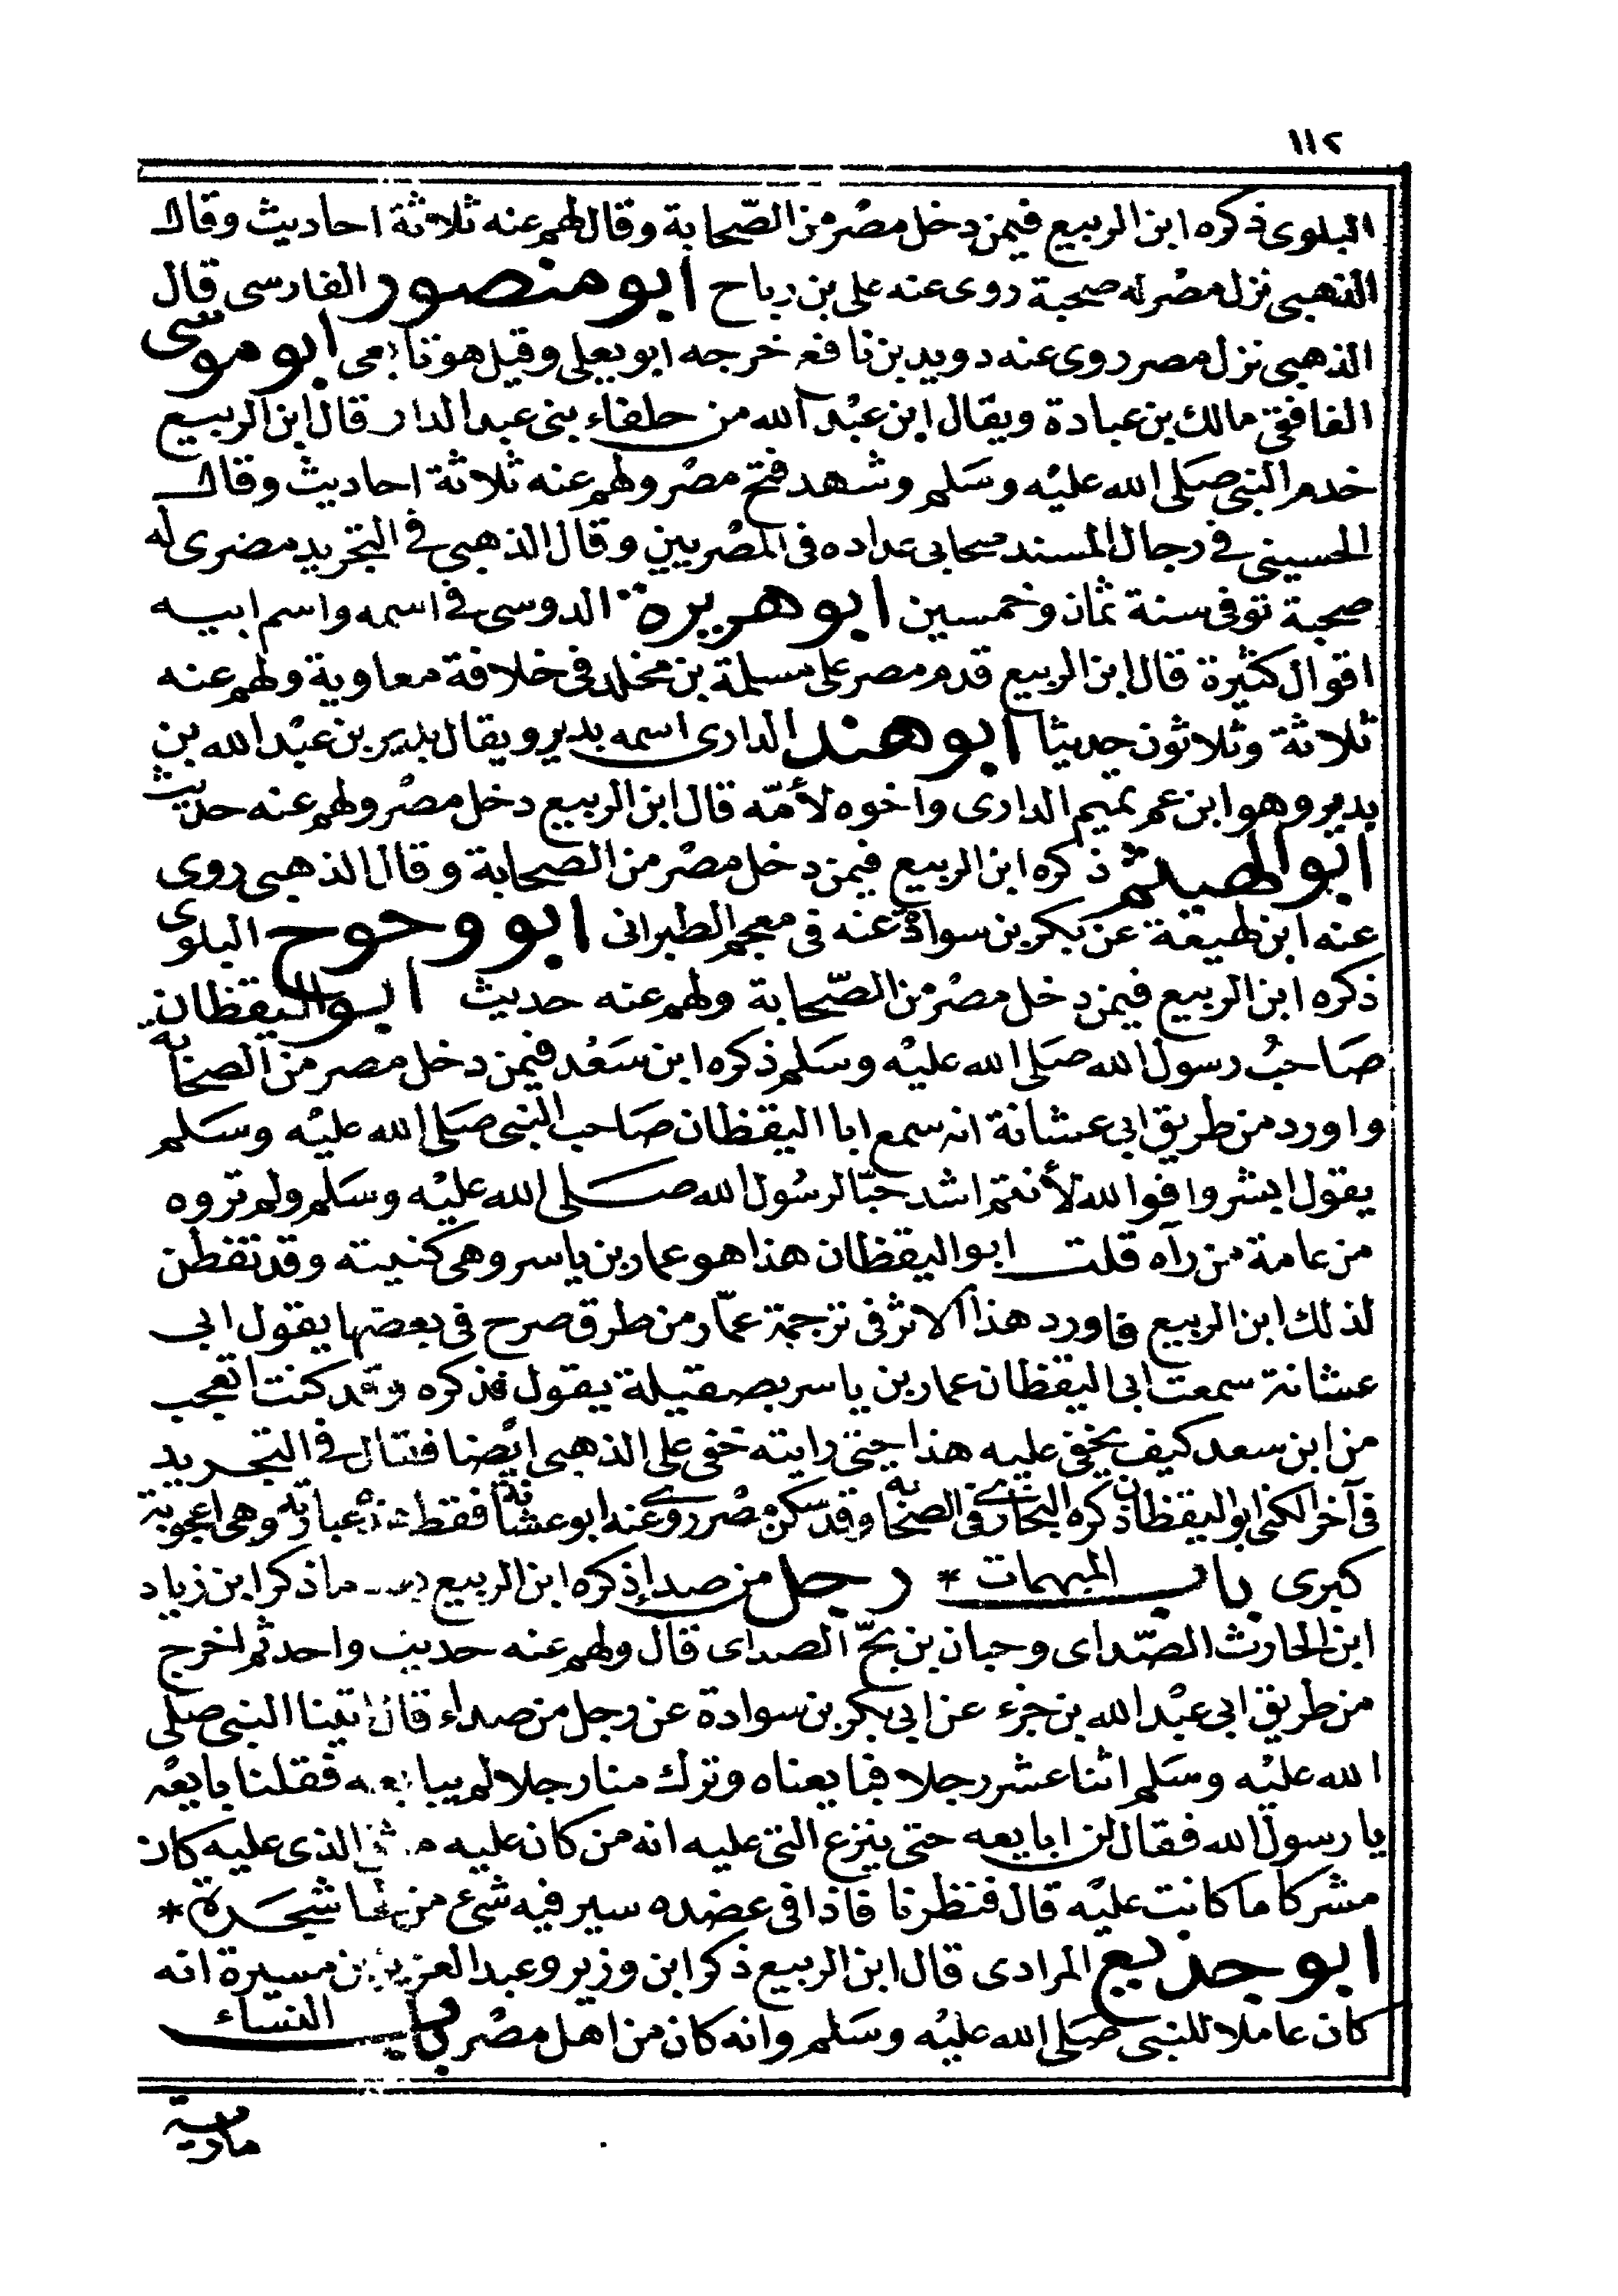 ١١٢
البلوى ذكره ابن الربيع فيمن دخل مصر من الصحابة وقال لهم عنه ثلاثة احاديث وقال
الذهبى نزل مصر له صحبة روى عنه على بن رباح ابو منصور الفارسى قال
الذهبى نزل مصر روى عنه دويد بن نافع خرجه ابو يعلى وقيل هو تابعى ابو موسى
الغافقى مالك بن عبادة ويقال ابن عبد الله من حلفاء بنى عبد الدار قال ابن الربيع
خدم النبى صلى الله عليه وسلم وشهد فتح مصر ولهم عنه ثلاثة احاديث وقال
الحسينى فى رجال المسند صحابى عداده فى المصريين وقال الذهبى فى التجريد مضرى له
صحبة توفى سنة ثمان وخمسين ابو هريرة الدوسى فى اسمه واسم ابيه
اقوال كثيرة قال ابن الربيع قدم مصر على مسلمة بن مخلد فى خلافة معاوية ولهم عنه
ثلاثة وثلاثون حديثا ابو هند الدارى اسمه بدير ويقال بدير بن عبد الله بن
بدير وهو ابن عم تميم الدارى واخوه لأمّه قال ابن الربيع دخل مصر ولهم عنه حديث
ابو الهيثم ذكره ابن الربيع فيمن دخل مصر من الصحابة وقال الذهبى روى
عنه ابن لهيعة عن بكر بن سوادة عنه فى معجم الطبرانى ابو وحوح البلوى
ذكره ابن الربيع فيمن دخل مصر من الصّحابة ولهم عنه حديث ابو اليقظان
صَاحبُ رسول الله صَلى الله عليْه وسَلم ذكره ابن سَعْد فيمن دخل مصر من الصحابة
واورد من طريق ابى عشانة انه سمع ابا اليقظان صَاحب النبى صَلى الله عليْه وسَلم
يقول ابشروا فوالله لأنتم اشد حبّا لرسُول الله صَلى الله عليْه وسَلم ولم تروه
من عامة من رآه قلت ابو اليقظان هذا هو عمار بن ياسر وهى كنيته وقد تفطن
لذلك ابن الربيع فاورد هذا الاثر فى ترجمة عمّار من طرق صرح فى بعضها يقول ابى
عشانة سمعت ابى اليقظان عمار بن ياسر بصقيلة يقول فذكره وقد كنت اتعجب
من ابن سعد كيف يخفى عليه هذا حتى رايته خفى على الذهبى ايْضا فقال فى التجريد
فى آخر الكنى ابو اليقظان ذكره البخارى فى الصحابة وقد سكن مصر روى عنه ابو عشانة فقط هذه عبارته وهى اعجوبة
كبرى باب المبهمات * رجل من صداء ذكره ابن الربيع ما ذكر ابن زياد
ابن الحارث الصّداى وحبان بن بحّ الصداى قال ولهم عنه حديث واحد ثم اخرج
من طريق ابى عبْد الله بن جزء عن ابى بكر بن سوادة عن رجل من صداء قال اتينا النبى صلى
الله عليْه وسَلم اثنا عشر رجلا فبايعناه وترك منا رجلا لم يبايعه فقلنا بايعْه
يا رسول الله فقال لن ابايعه حتى ينزع التى عليه انه من كان عليه مثل الذى عليه كان
مشركا ما كانت عليْه قال فنظرنا فاذا فى عضده سير فيه شئ من لحا شجرة *
ابو جديع المرادى قال ابن الربيع ذكر ابن وزير وعبد العزيز بن مسيرة انه
كان عاملا للنبى صَلى الله عليْه وسَلم وانه كان من اهل مصْر باب النساء
مارية